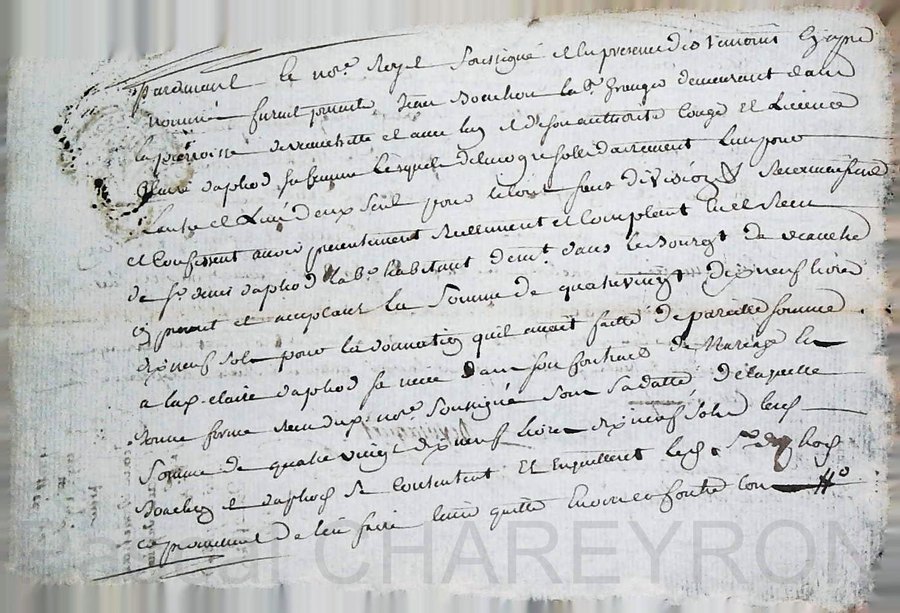 pardevant le nore Royal soussigné et en presence des temoins cy apres
nommés furent presents Jean Bouchon lab. granger demeurant dans
la parroisse de et avec luy et de son authorite conge et Licence
Claire daphod sa femme Lesquels de leur gre sollidairement lun pour
Lautre et L'un deux seul pour le tout sans division
et Confessent avoir presentement Reellement et Comptent eu et Receu
de sr daphod lab. habitant demt. dans le Bourg de
cy present et acceptant La Somme de quatrevingt dixneuf livres
dixneuf sols pour la donnation quil avoit faitte de pareille somme
a lad. Claire daphod sa niece dans son Contract de Mariage en
bonne forme Receu dud. nore soussigné sous sa datte de laquelle
Somme de quatre vingt dixneuf livres dixneuf sols lesd.
Bouchon et daphod se Contentent et en quittent led. sr daphod
cy present de leur faire
Pascal CHAREYRON